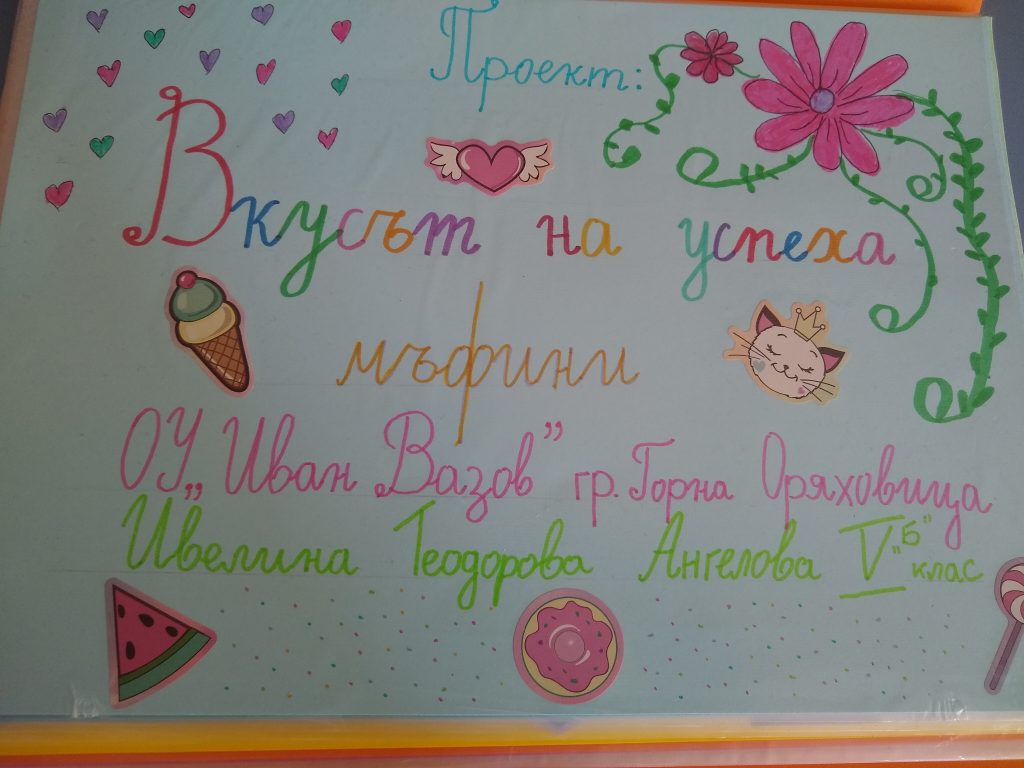 Проект:
Вкусът на успеха
мъфини
ОУ „Иван Вазов” гр. Горна Оряховица
Ивелина Теодорова Ангелова V „Б” клас